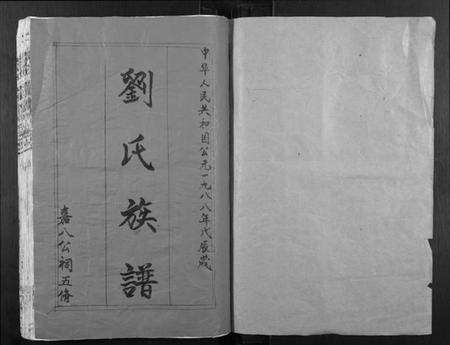 中华人民共和国公元一九八八年戊辰岁
劉氏族譜
嘉八公祠五修